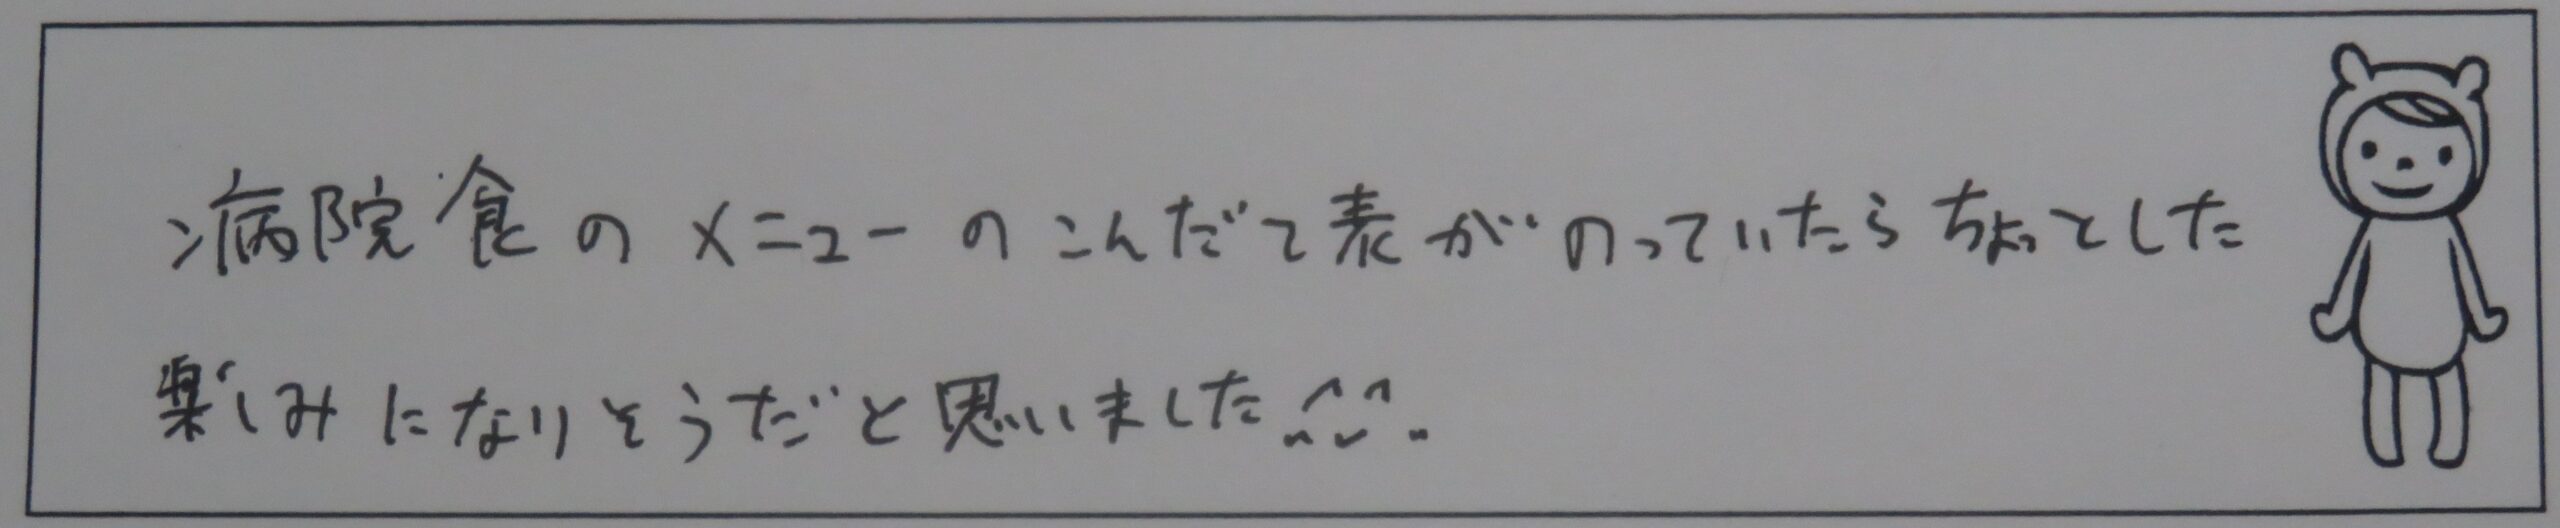 病院食のメニューのこんだて表がのっていたらちょっとした
楽しみになりそうだと思いました